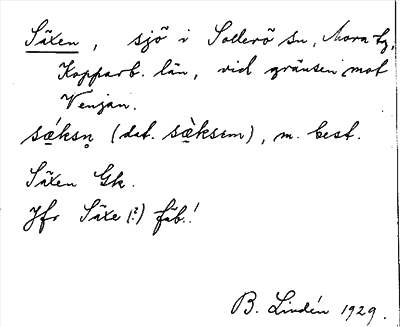 Säxen, sjö i Sollerö sn, Mora tg,
Kopparb. län, vid gränsen mot
Venjan.
sä̀ksn̥ (dat. sä̀ksem), m. best.
Säxen Gk.
Jfr Säxe (?) fäb.!
B. Lindén 1929.